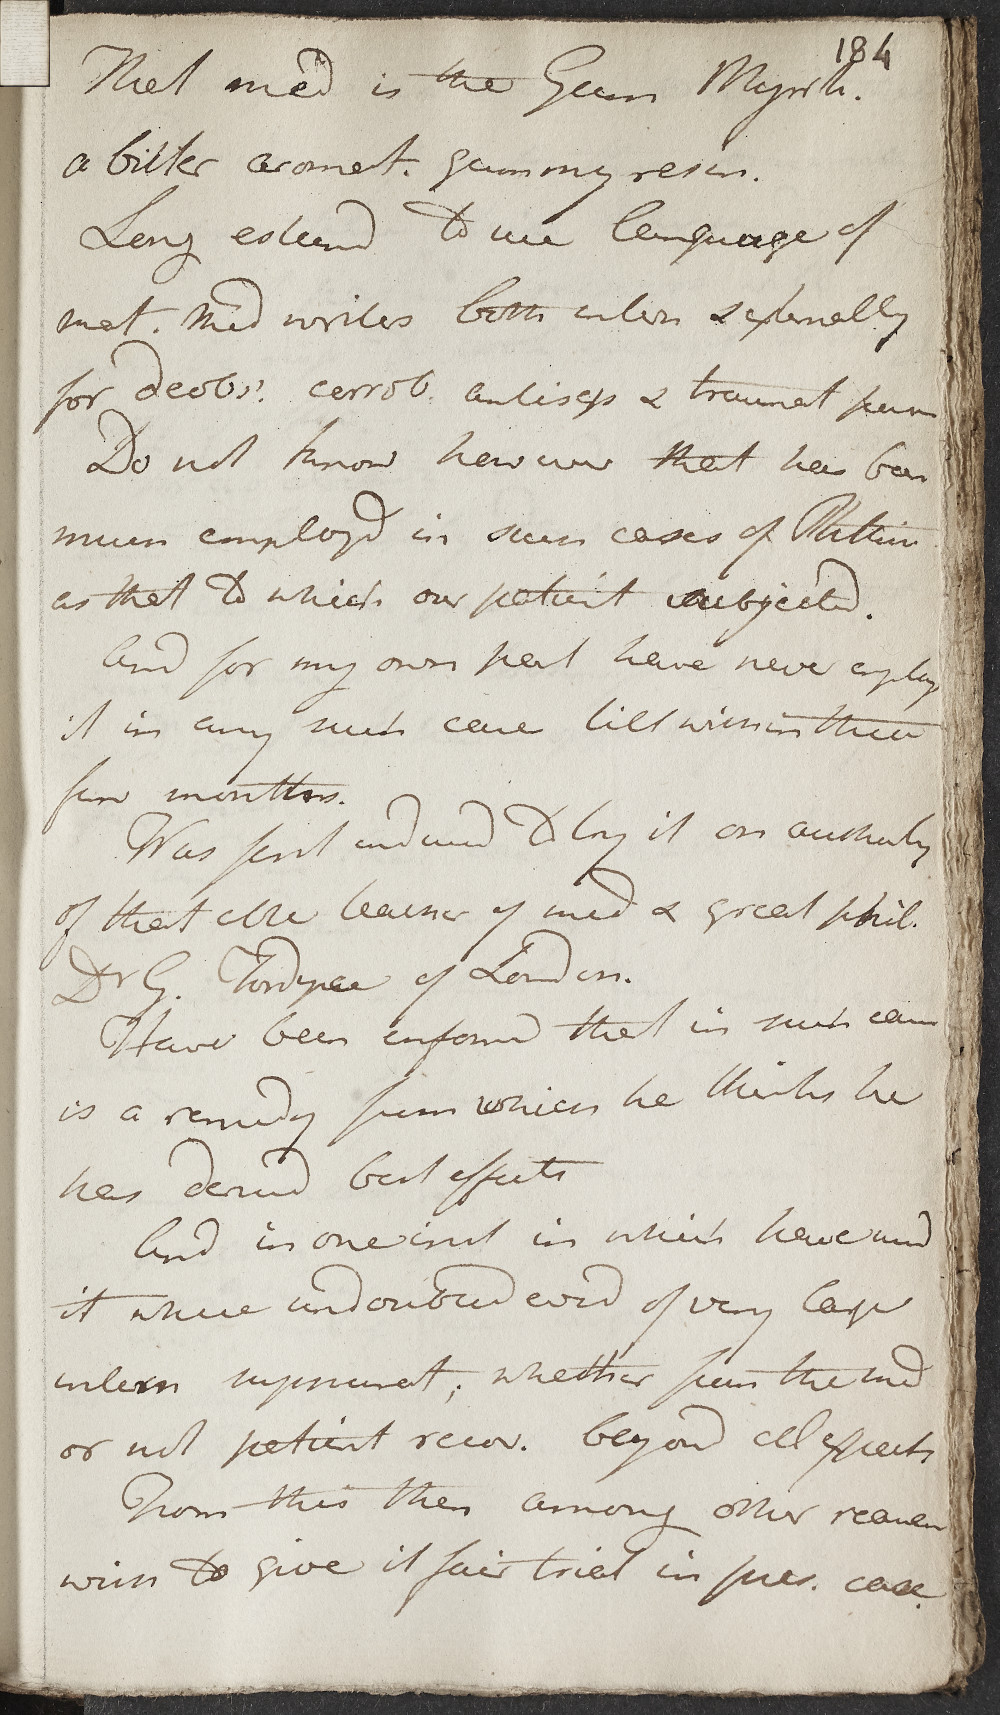 184
That med is the Gum Myrrh.
a bitter aromat. gummy resin.
Long esteemd to use language of
mat. med writers both intern & externally
for deobs: corrob. antisep & traumat
Do not know however that has been
much employd in such cases of Phthisis
as that to which our patient subjected.
And for my own part have never employ
it in any such case till within these
few months.
Was first inducd to try it on authority
of that able teacher of med & great phil.
Dr G. Fordyce of London.
Have been informd that in such cases
is a remedy from which he thinks he
has derivd best effects
And in one inst in which have usd
it where undoubted evid of very large
intern suppurat; whether from the med
or not patient recov. beyond all expects
From this then among other reasons
wish to give it fair trial in pres. case.